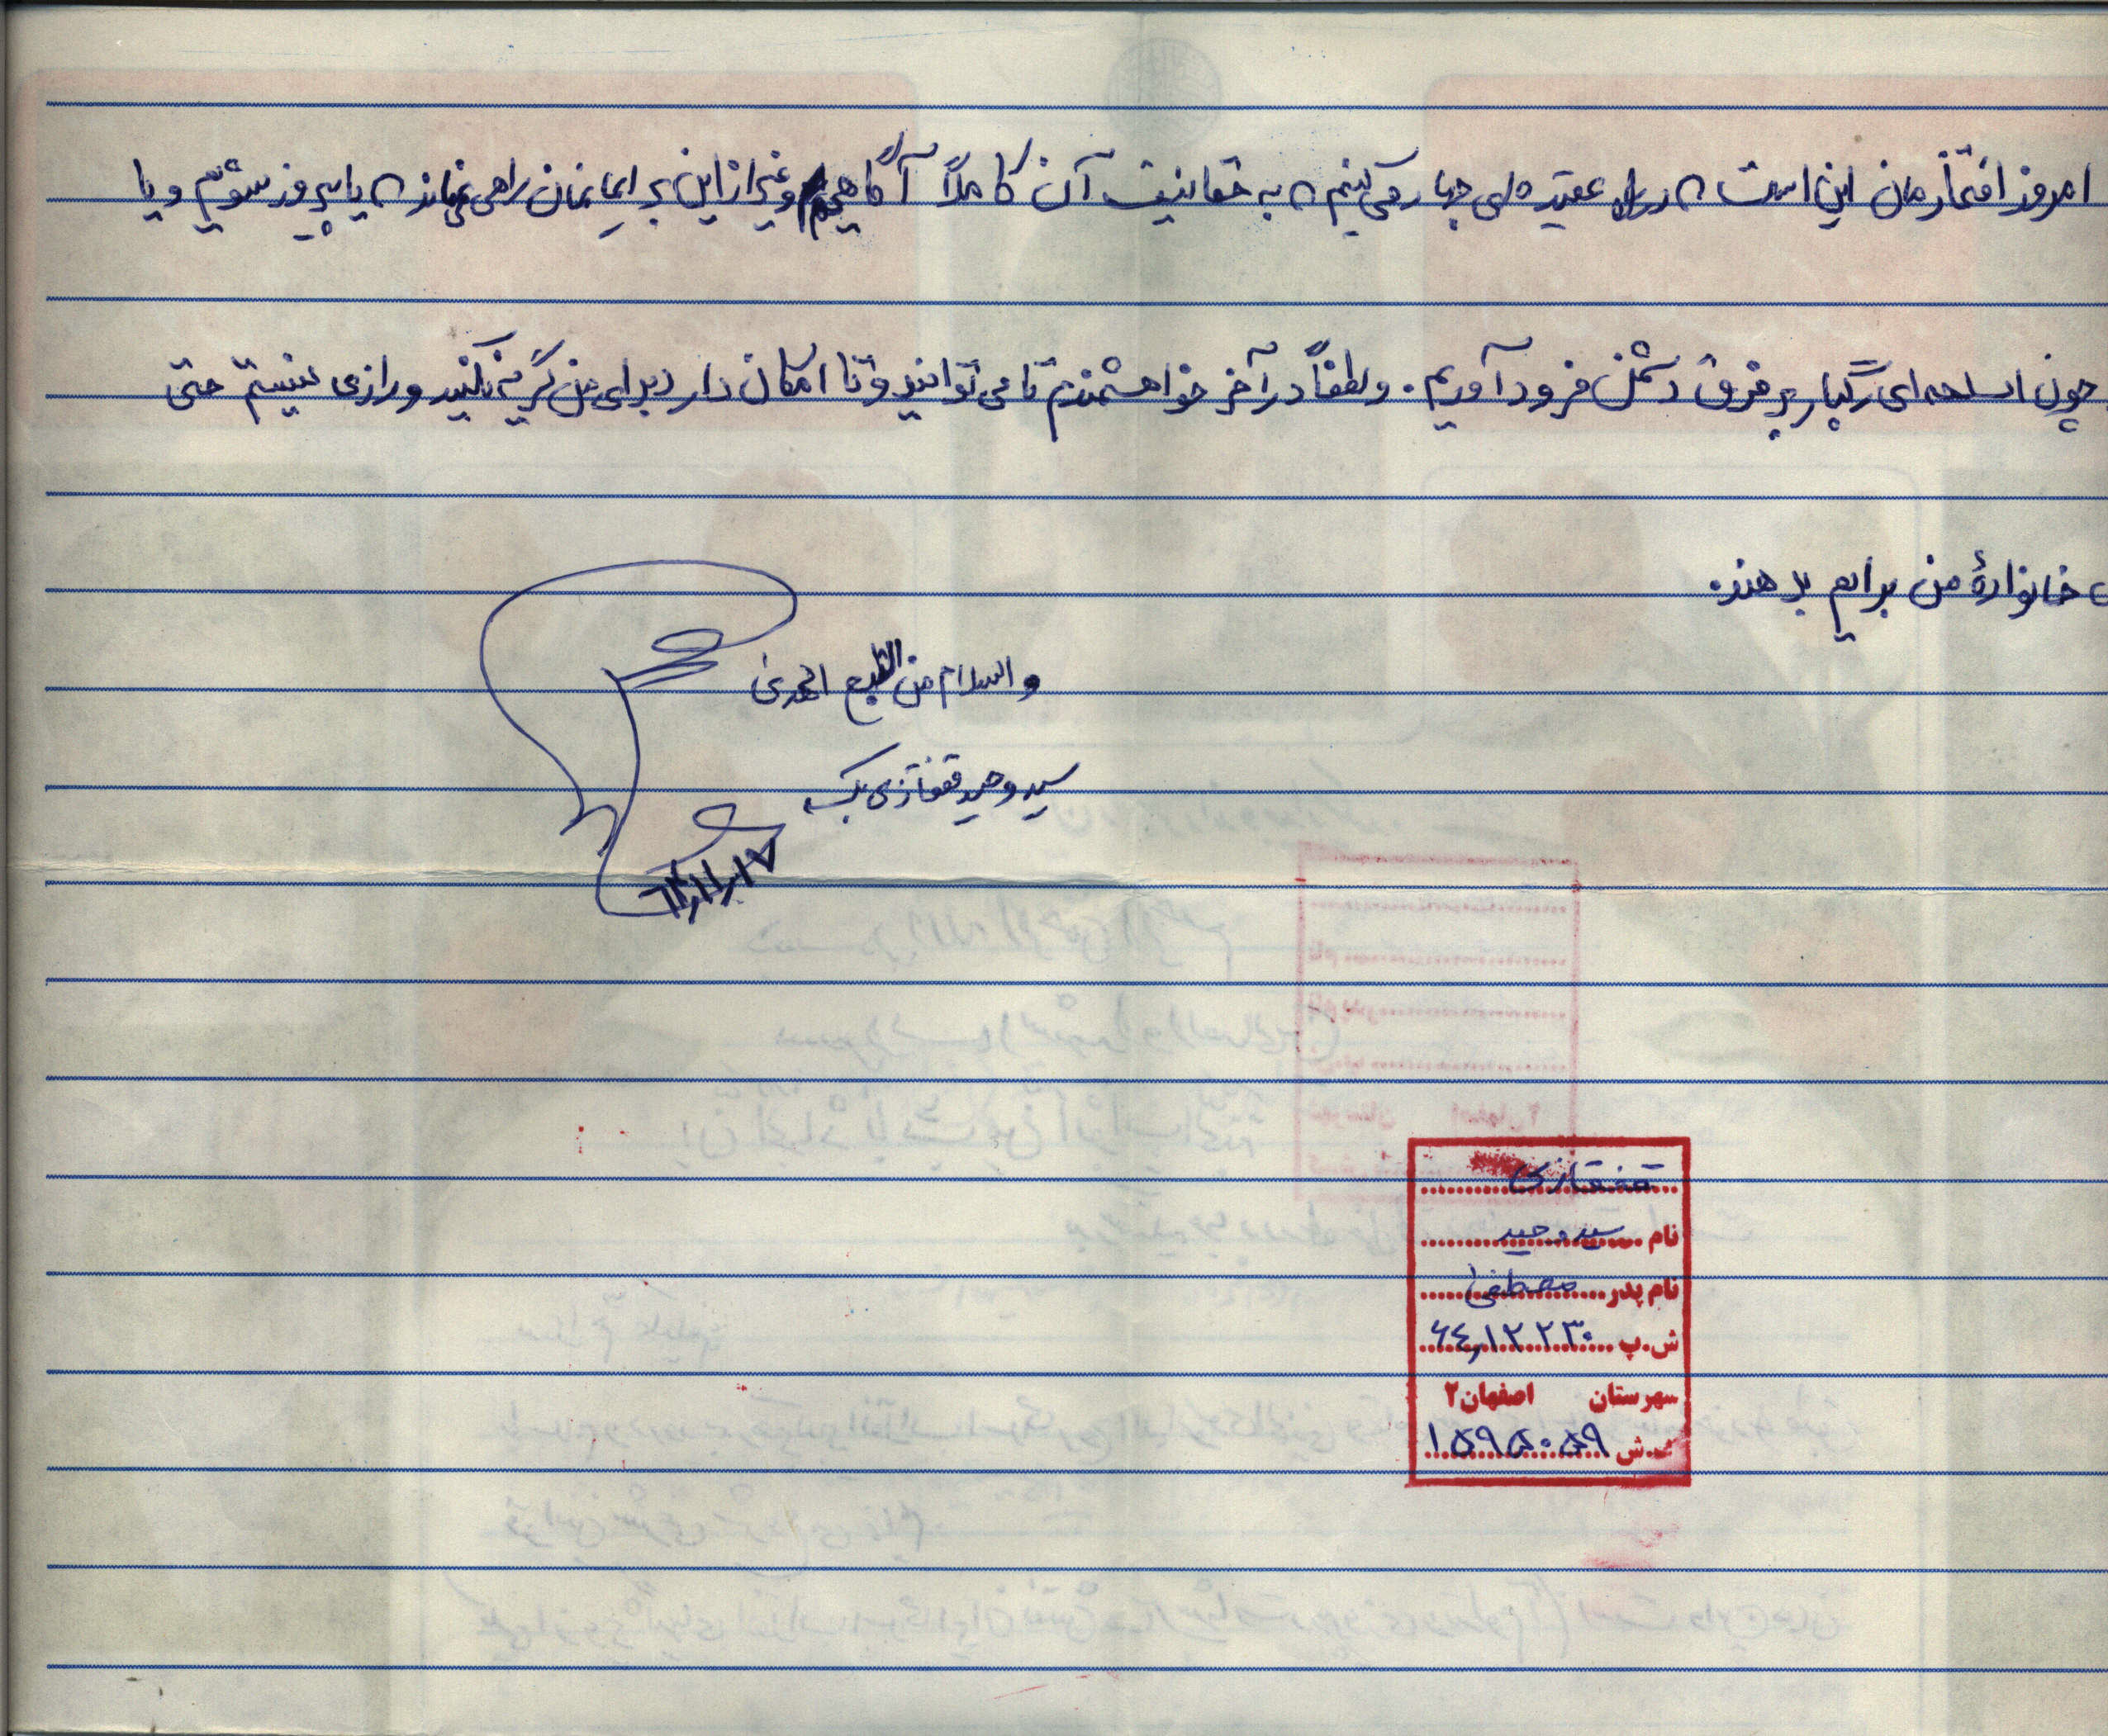 امروز افتخارمان این است که در راه عقیده ای جهاد می کنیم که به حقانیت آن کاملاً آگاهیم و غیر از این بر ایمانمان راهی نمانده یا پیروز شویم و یا
چون اسلحه ای رگبار بر فرق دشمن فرود آوریم. و لطفاً در آخر خواهشمندم تا می توانید و تا امکان دارد برای من گریه نکنید و راضی نیستم حتی
خانوادهٔ من برایم بدهند.
والسلام من اتبع الهدی
سید وحید قفقازی
۶۴/۱۱/۱۷
قفقازی
نام سید وحید
نام پدر مصطفی
ش.پ ۶٤,۱۲۲۳۰
شهرستان اصفهان۲
ش.ش ۱۵۹۵۰۵۹